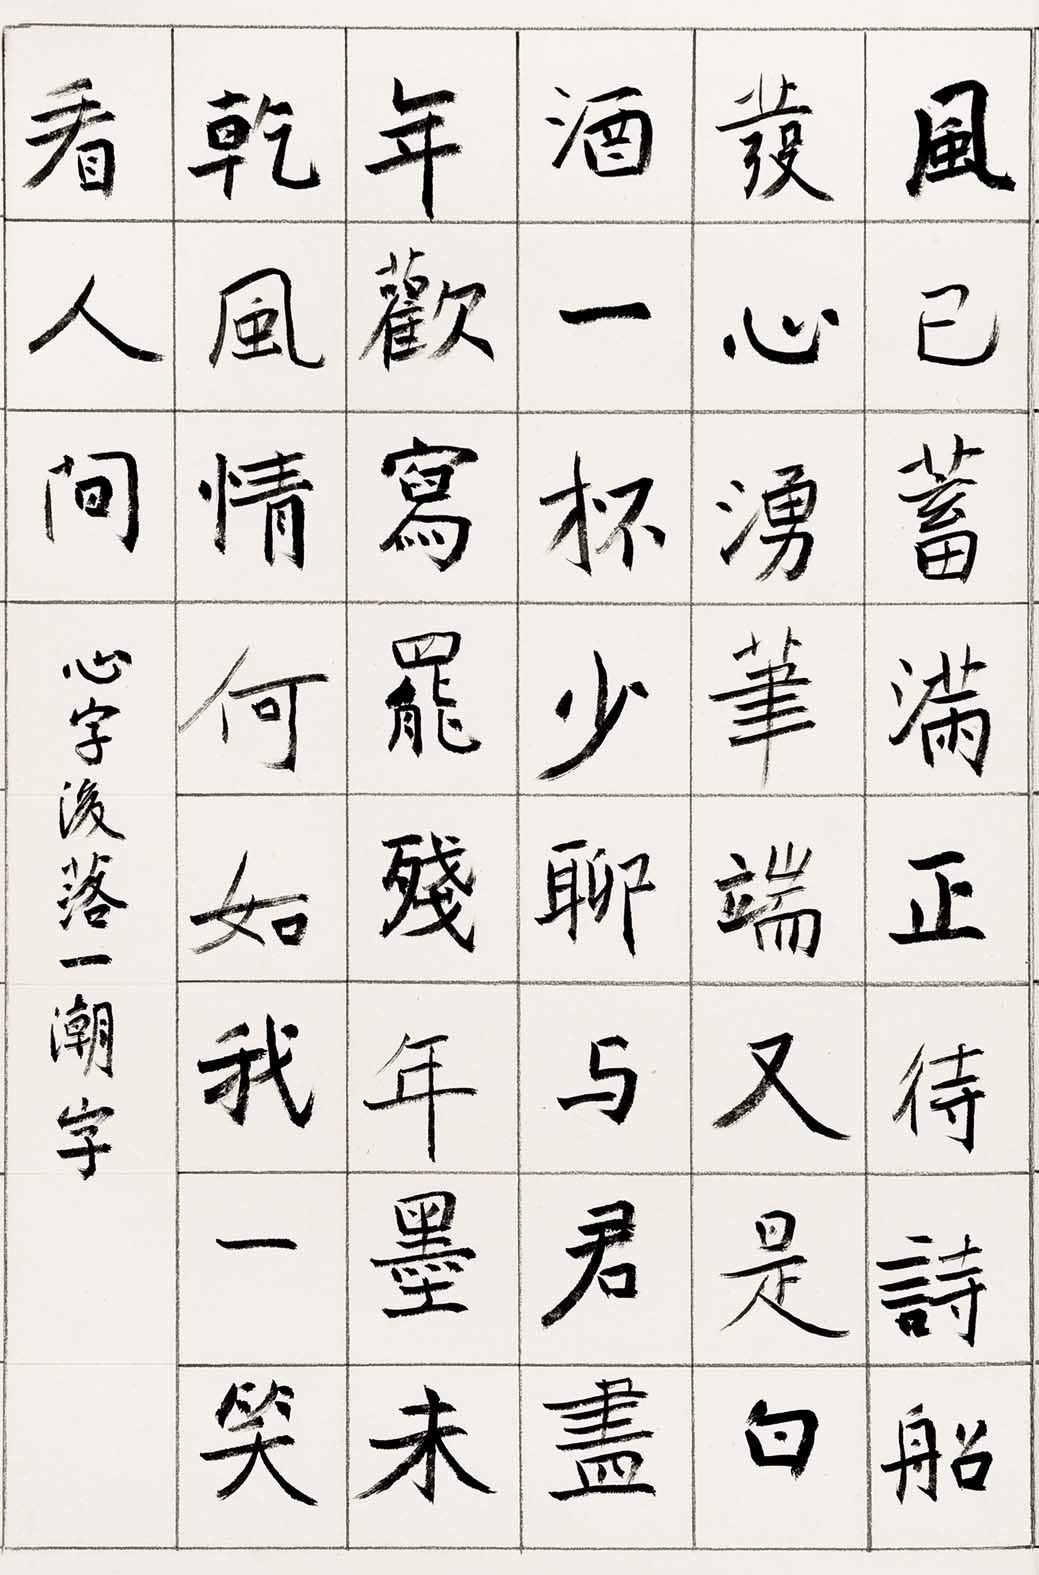 風已蓄滿正待詩船
發心湧筆端又是句
酒一杯少聊与君盡
年歡寫罷殘年墨未
乾風情何如我一笑
看人间
心字後落一潮字